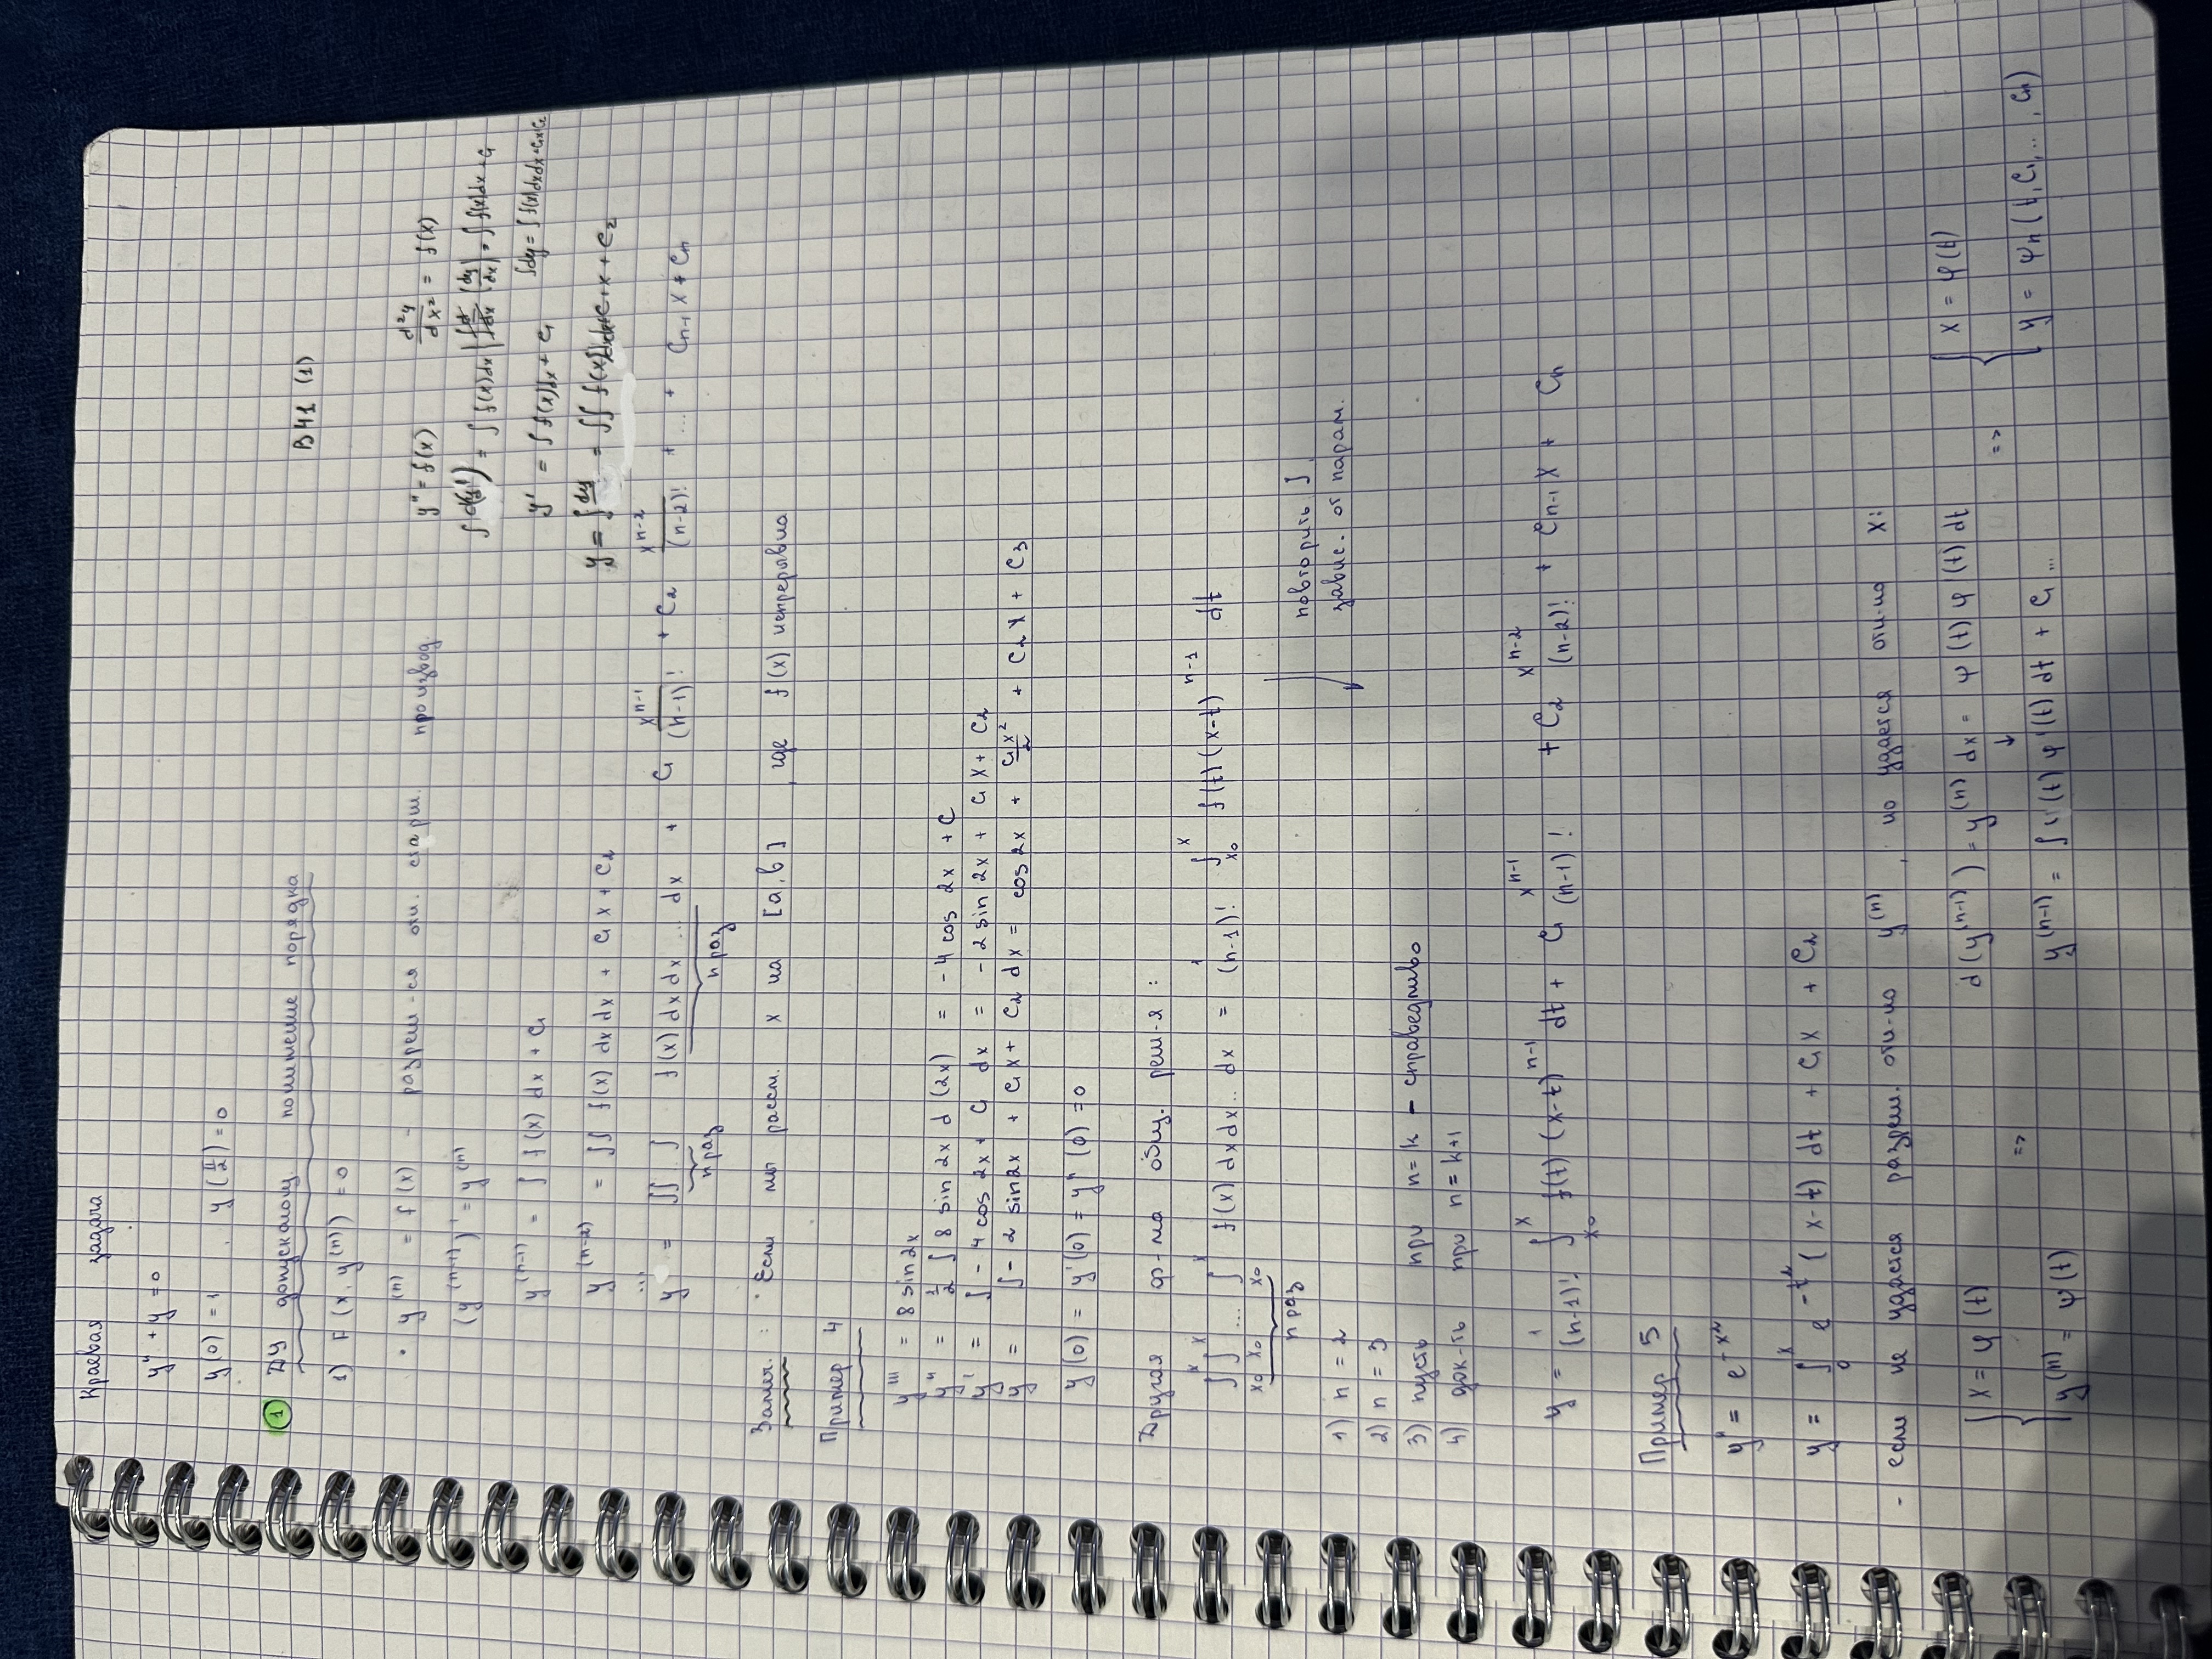 Краевая задача
y'' + y = 0
y(0) = 1 , y(π/2) = 0
1 ДУ допускающ. понижение порядка
В 41 (1)
1) F(x, y^(n)) = 0
• y^(n) = f(x) - разреш-ся отн. старш. производ.
(y^(n-1))' = y^(n)
y^(n-1) = ∫ f(x) dx + C₁
y^(n-2) = ∫∫ f(x) dx dx + C₁x + C₂
...
y = ∫∫...∫ f(x) dx dx ... dx + C₁ x^(n-1)/(n-1)! + C₂ x^(n-2)/(n-2)! + ... + Cₙ₋₁ x + Cₙ
n раз n раз
y'' = f(x) d²y/dx² = f(x)
∫ d(y') = ∫ f(x) dx | (dy/dx) = ∫ f(x) dx + C₁
y' = ∫ f(x) dx + C₁ ∫dy = ∫ f(x) dx dx + C₁x + C₂
y = ∫ dy = ∫∫ f(x) dx dx + C₁x + C₂
Замеч. : Если мы рассм. x на [a, b] , где f(x) непрерывна
Пример 4
y''' = 8 sin 2x
y'' = 1/2 ∫ 8 sin 2x d(2x) = -4 cos 2x + C
y' = ∫ - 4 cos 2x + C₁ dx = - 2 sin 2x + C₁x + C₂
y = ∫ - 2 sin 2x + C₁x + C₂ dx = cos 2x + C₁x²/2 + C₂x + C₃
y(0) = y'(0) = y''(0) = 0
Другая ф-ма общ. реш-я :
∫_{x₀}^x ∫_{x₀}^x ... ∫_{x₀}^x f(x) dx dx .. dx = 1/(n-1)! ∫_{x₀}^x f(t) (x-t)^(n-1) dt
n раз
повторить ∫,
завис. от парам.
1) n = 2
2) n = 3
3) пусть при n = k - справедливо
4) док-ть при n = k+1
y = 1/(n-1)! ∫_{x₀}^x f(t) (x-t)^(n-1) dt + C₁ x^(n-1)/(n-1)! + C₂ x^(n-2)/(n-2)! + Cₙ₋₁ x + Cₙ
Пример 5
y'' = e^(-x²)
y = ∫_0^x e^(-t²) (x-t) dt + C₁x + C₂
- если не удается разреш. отн-но y^(n) , но удается отн-но x:
{ x = φ(t)
y^(n) = ψ(t)
=>
d(y^(n-1)) = y^(n) dx = ψ(t) φ'(t) dt
↓
y^(n-1) = ∫ ψ(t) φ'(t) dt + C₁ ...
=>
{ x = φ(t)
y = ψₙ(t, C₁, ..., Cₙ)